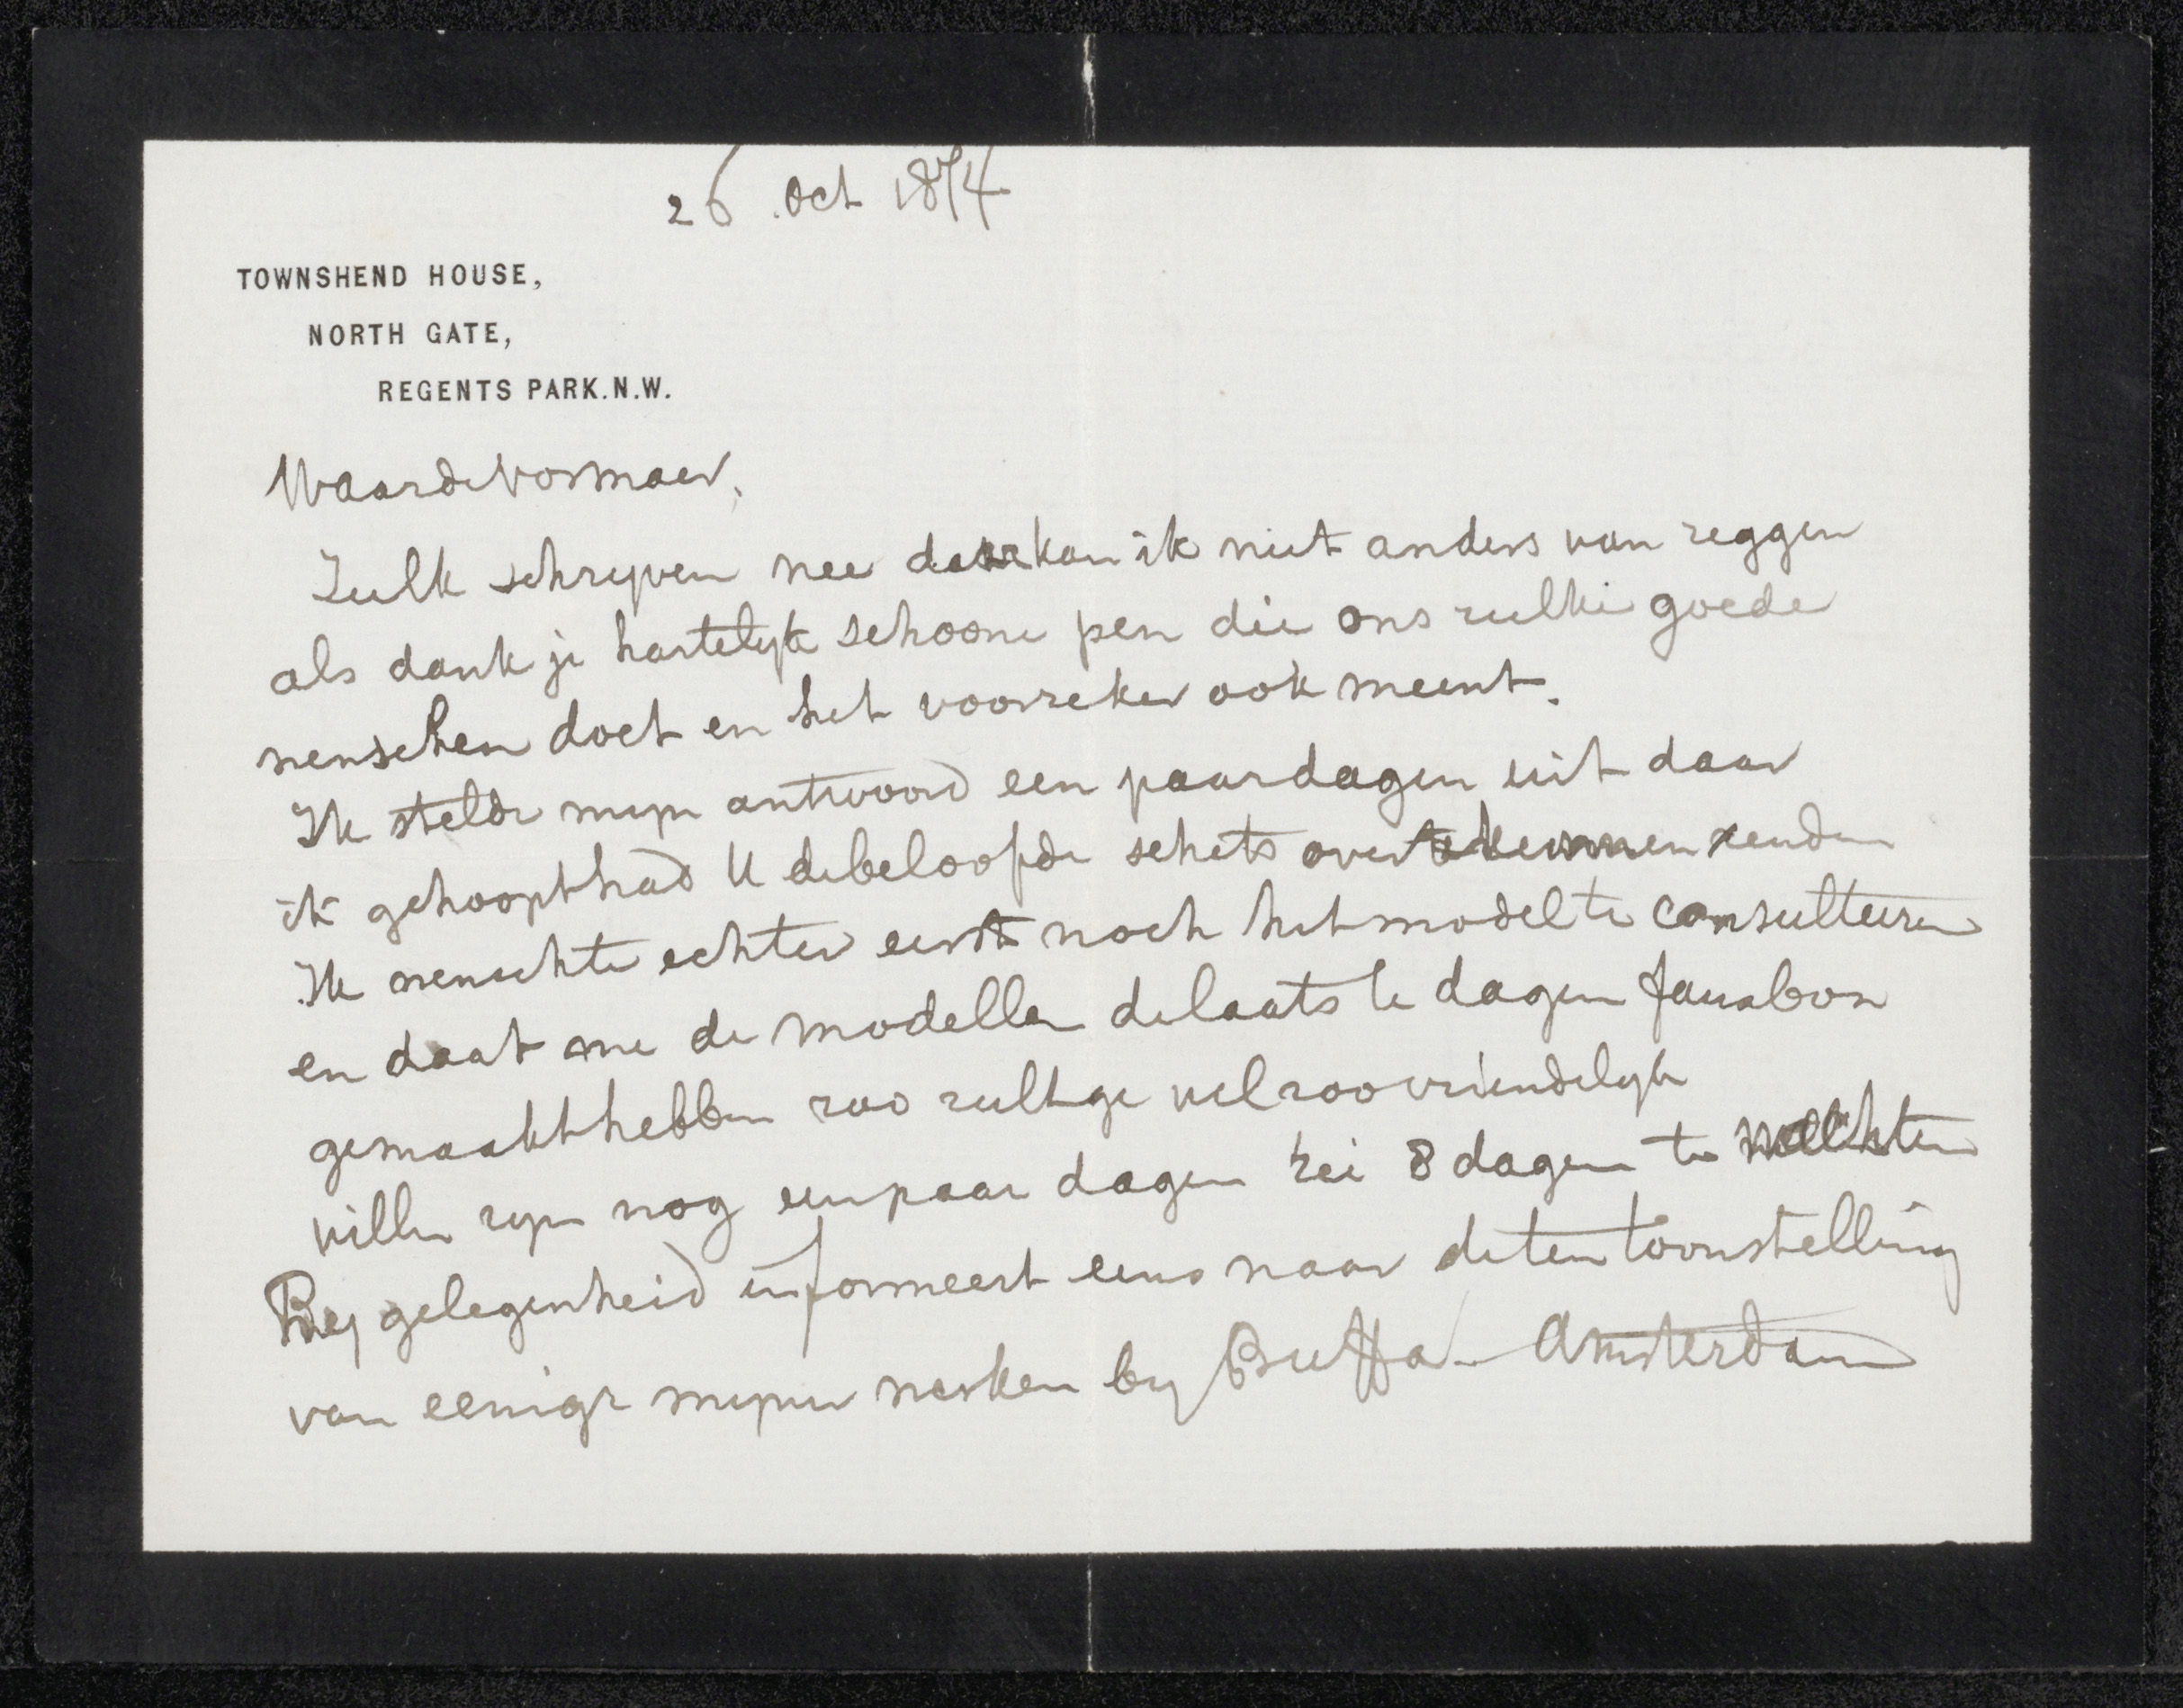 26 Oct 1874
TOWNSHEND HOUSE,
NORTH GATE,
REGENTS PARK.N.W.
Waarde Vosmaer,
Zulk schryven nee daar kan ik niet anders van zeggen
als dank je hartelyk schoone pen die ons zulke goede
wenschen doet en het voorzeker ook meent.
Ik stelde myn antwoord een paar dagen uit daar
ik gehoopt had U de beloofde schets over te kunnen zenden
Ik wenschte echter eerst noch het model te consulteeren
en daat me de modellen de laatste dagen
gemaakt hebben zoo zult ge wel zoo vriendelyk
willen zyn nog een paar dagen zei 8 dagen te wachten
Bey gelegenheid informeert eens naar de tentoonstelling
van eenige myner werken by Buffa - Amsterdam